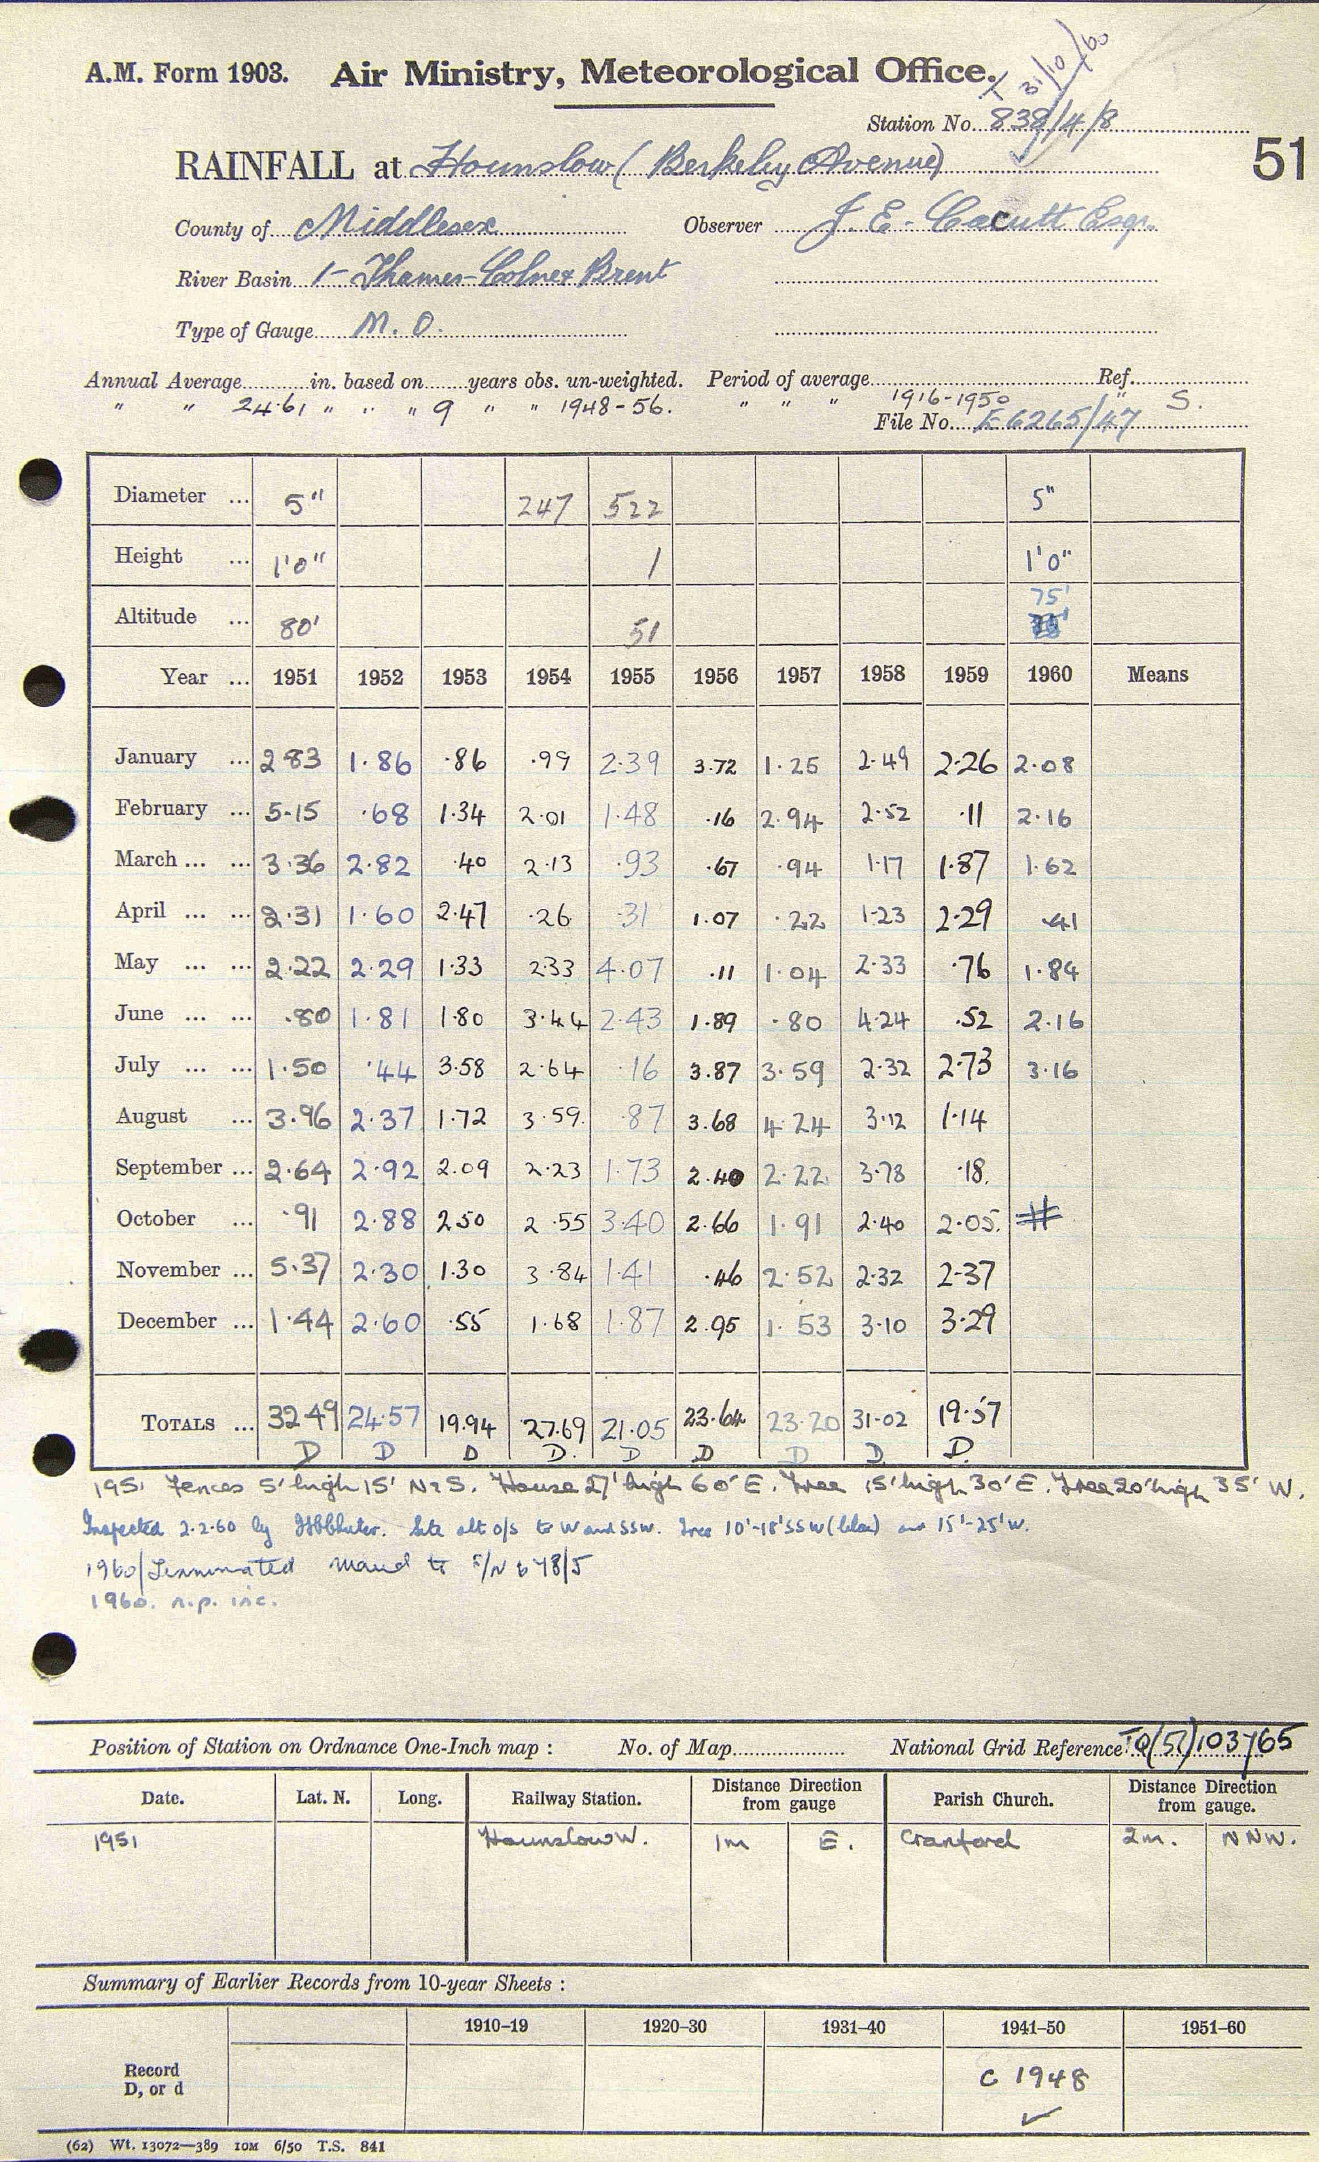 A.M. Form 1903. Air Ministry, Meteorological Office.
T 31/10/60
Station No. 838/4/8
51
RAINFALL at Hounslow (Berkeley Avenue)
County of Middlesex Observer J. E. Cacutt Esqr.
River Basin 1- Thames-Colne & Brent
Type of Gauge M. O.
Annual Average in. based on years obs. un-weighted. Period of average Ref.
" " 24.61 " " " 9 " " 1948-56. " " " 1916-1950 " S.
File No. E6265/47
Diameter ... 5" 247 522 5"
Height ... 1'0" 1 1'0"
75'
Altitude ... 80' 51
Year ... 1951 1952 1953 1954 1955 1956 1957 1958 1959 1960 Means
January ... 2.83 1.86 .86 .99 2.39 3.72 1.25 2.49 2.26 2.08
February ... 5.15 .68 1.34 2.01 1.48 .16 2.94 2.52 .11 2.16
March ... ... 3.36 2.82 .40 2.13 .93 .67 .94 1.17 1.87 1.62
April ... ... 2.31 1.60 2.47 .26 .31 1.07 .22 1.23 2.29 .41
May ... ... 2.22 2.29 1.33 2.33 4.07 .11 1.04 2.33 .76 1.84
June ... ... .80 1.81 1.80 3.44 2.43 1.89 .80 4.24 .52 2.16
July ... ... 1.50 .44 3.58 2.64 .16 3.87 3.59 2.32 2.73 3.16
August ... 3.96 2.37 1.72 3.59 .87 3.68 4.24 3.12 1.14
September ... 2.64 2.92 2.09 2.23 1.73 2.40 2.22 3.78 .18
October ... .91 2.88 2.50 2.55 3.40 2.66 1.91 2.40 2.05 #
November ... 5.37 2.30 1.30 3.84 1.41 .46 2.52 2.32 2.37
December ... 1.44 2.60 .55 1.68 1.87 2.95 1.53 3.10 3.29
TOTALS ... 32.49 24.57 19.94 27.69 21.05 23.64 23.20 31.02 19.57
D D D D. D D D D D.
1951 Fences 5' high 15' N & S. House 27' high 60' E. Tree 15' high 30' E. Tree 20' high 35' W.
Inspected 2.2.60 by Site alt o/s to W and SSW. Tree 10'-18' SSW (lilac) and 15'-25' W.
1960/Terminated to F/N 678/5
1960. n.p. inc.
Position of Station on Ordnance One-Inch map : No. of Map National Grid Reference TQ(51)103765
Date. Lat. N. Long. Railway Station. Distance Direction from gauge Parish Church. Distance Direction from gauge.
1951 Hounslow W. 1m E. Cranford 2m. NNW.
Summary of Earlier Records from 10-year Sheets :
1910-19 1920-30 1931-40 1941-50 1951-60
Record
D, or d C 1948
✓
(62) Wt. 13072—389 10M 6/50 T.S. 841